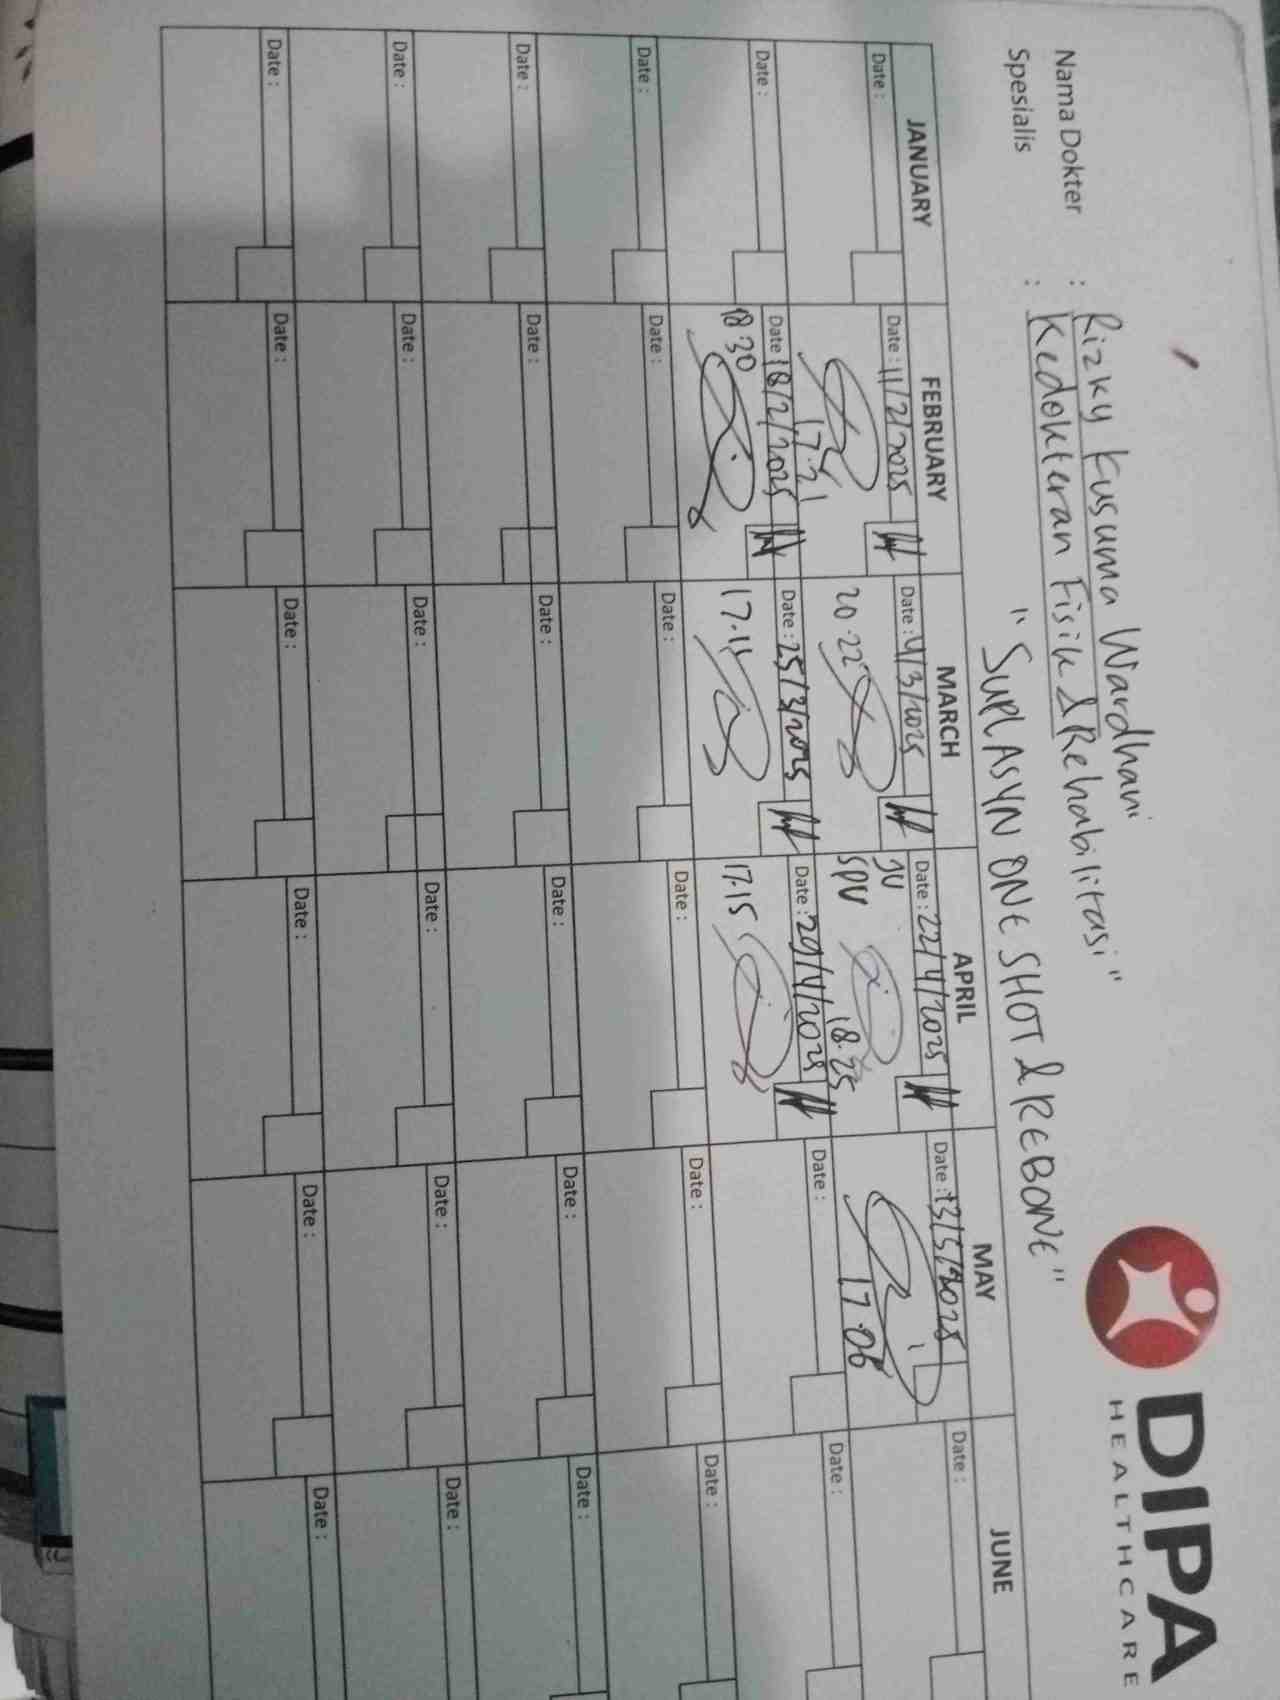 DIPA
HEALTHCARE
Nama Dokter : Rizky Kusuma Wardhani
Spesialis : Kedokteran Fisik & Rehabilitasi"
"SUPLASYN ONE SHOT & REBONE"
JANUARY FEBRUARY MARCH APRIL MAY JUNE
Date : Date : 11/2/2025 Date : 4/3/2025 Date : 22/4/2025 Date : 13/5/2025 Date :
17.21 20.22 JV SPV 18.25 17.06
Date : Date 18/2/2025 Date : 25/3/2025 Date : 29/4/2025 Date : Date :
18.30 17.11 17.15
Date : Date : Date : Date : Date : Date :
Date : Date : Date : Date : Date : Date :
Date : Date : Date : Date : Date : Date :
Date : Date : Date : Date : Date : Date :